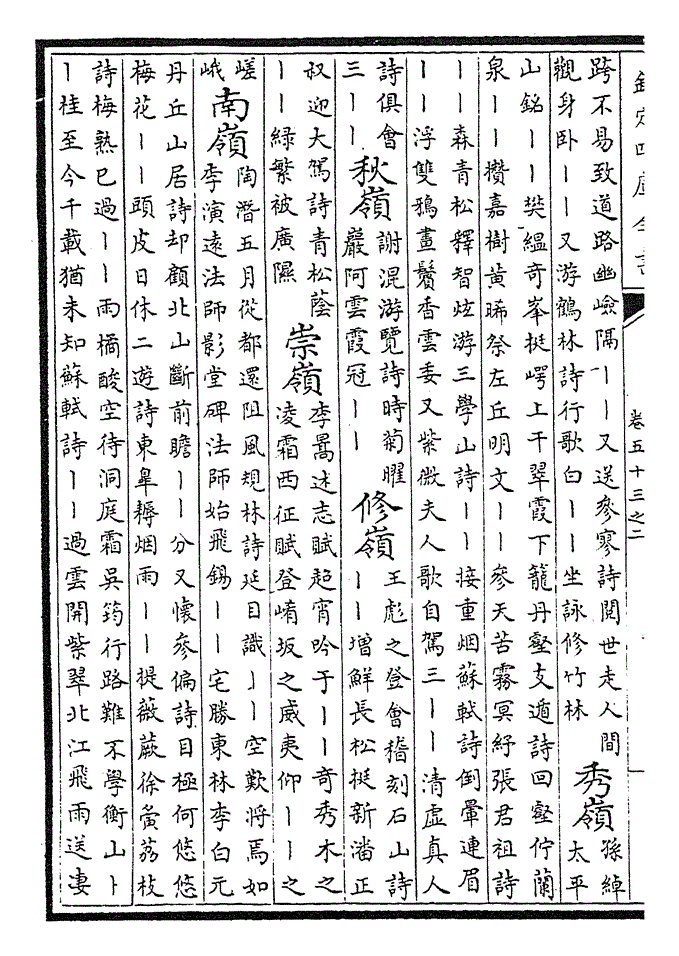 欽定四庫全書
卷五十三之二
跨不易致道路幽嶮隔丨丨又送參寥詩閱世走人間
觀身卧丨丨又游鶴林詩行歌白丨丨坐詠修竹林
秀嶺
孫綽
太平
山銘丨丨樊緼奇峯挺崿上干翠霞下籠丹壑支遁詩回壑佇蘭
泉丨丨攢嘉樹黄晞祭左丘明文丨丨參天苦霧冥紓張君祖詩
丨丨森青松釋智炫游三學山詩丨丨接重烟蘇軾詩倒暈連眉
丨丨浮雙鴉畫鬢香雲委又紫微夫人歌自駕三丨丨清虚真人
詩俱會
三丨丨
秋嶺
謝混游覽詩時菊曜
巖阿雲霞冠丨丨
修嶺
王彪之登會稽刻石山詩
丨丨增鮮長松挺新潘正
叔迎大駕詩青松蔭
丨丨緑繁被廣隰
崇嶺
李暠述志賦超宵吟于丨丨奇秀木之
凌霜西征賦登崤坂之威夷仰丨丨之
嵯
峨
南嶺
陶潛五月從都還阻風規林詩延目識丨丨空歎將焉如
李演遠法師影堂碑法師始飛錫丨丨宅勝東林李白元
丹丘山居詩却顧北山斷前瞻丨丨分又懷參偏詩目極何悠悠
梅花丨丨頭皮日休二遊詩東臯耨烟雨丨丨提薇蕨徐夤荔枝
詩梅熟已過丨丨雨橘酸空待洞庭霜吳筠行路難不學衡山丨
丨桂至今千載猶未知蘇軾詩丨丨過雲開紫翠北江飛雨送淒